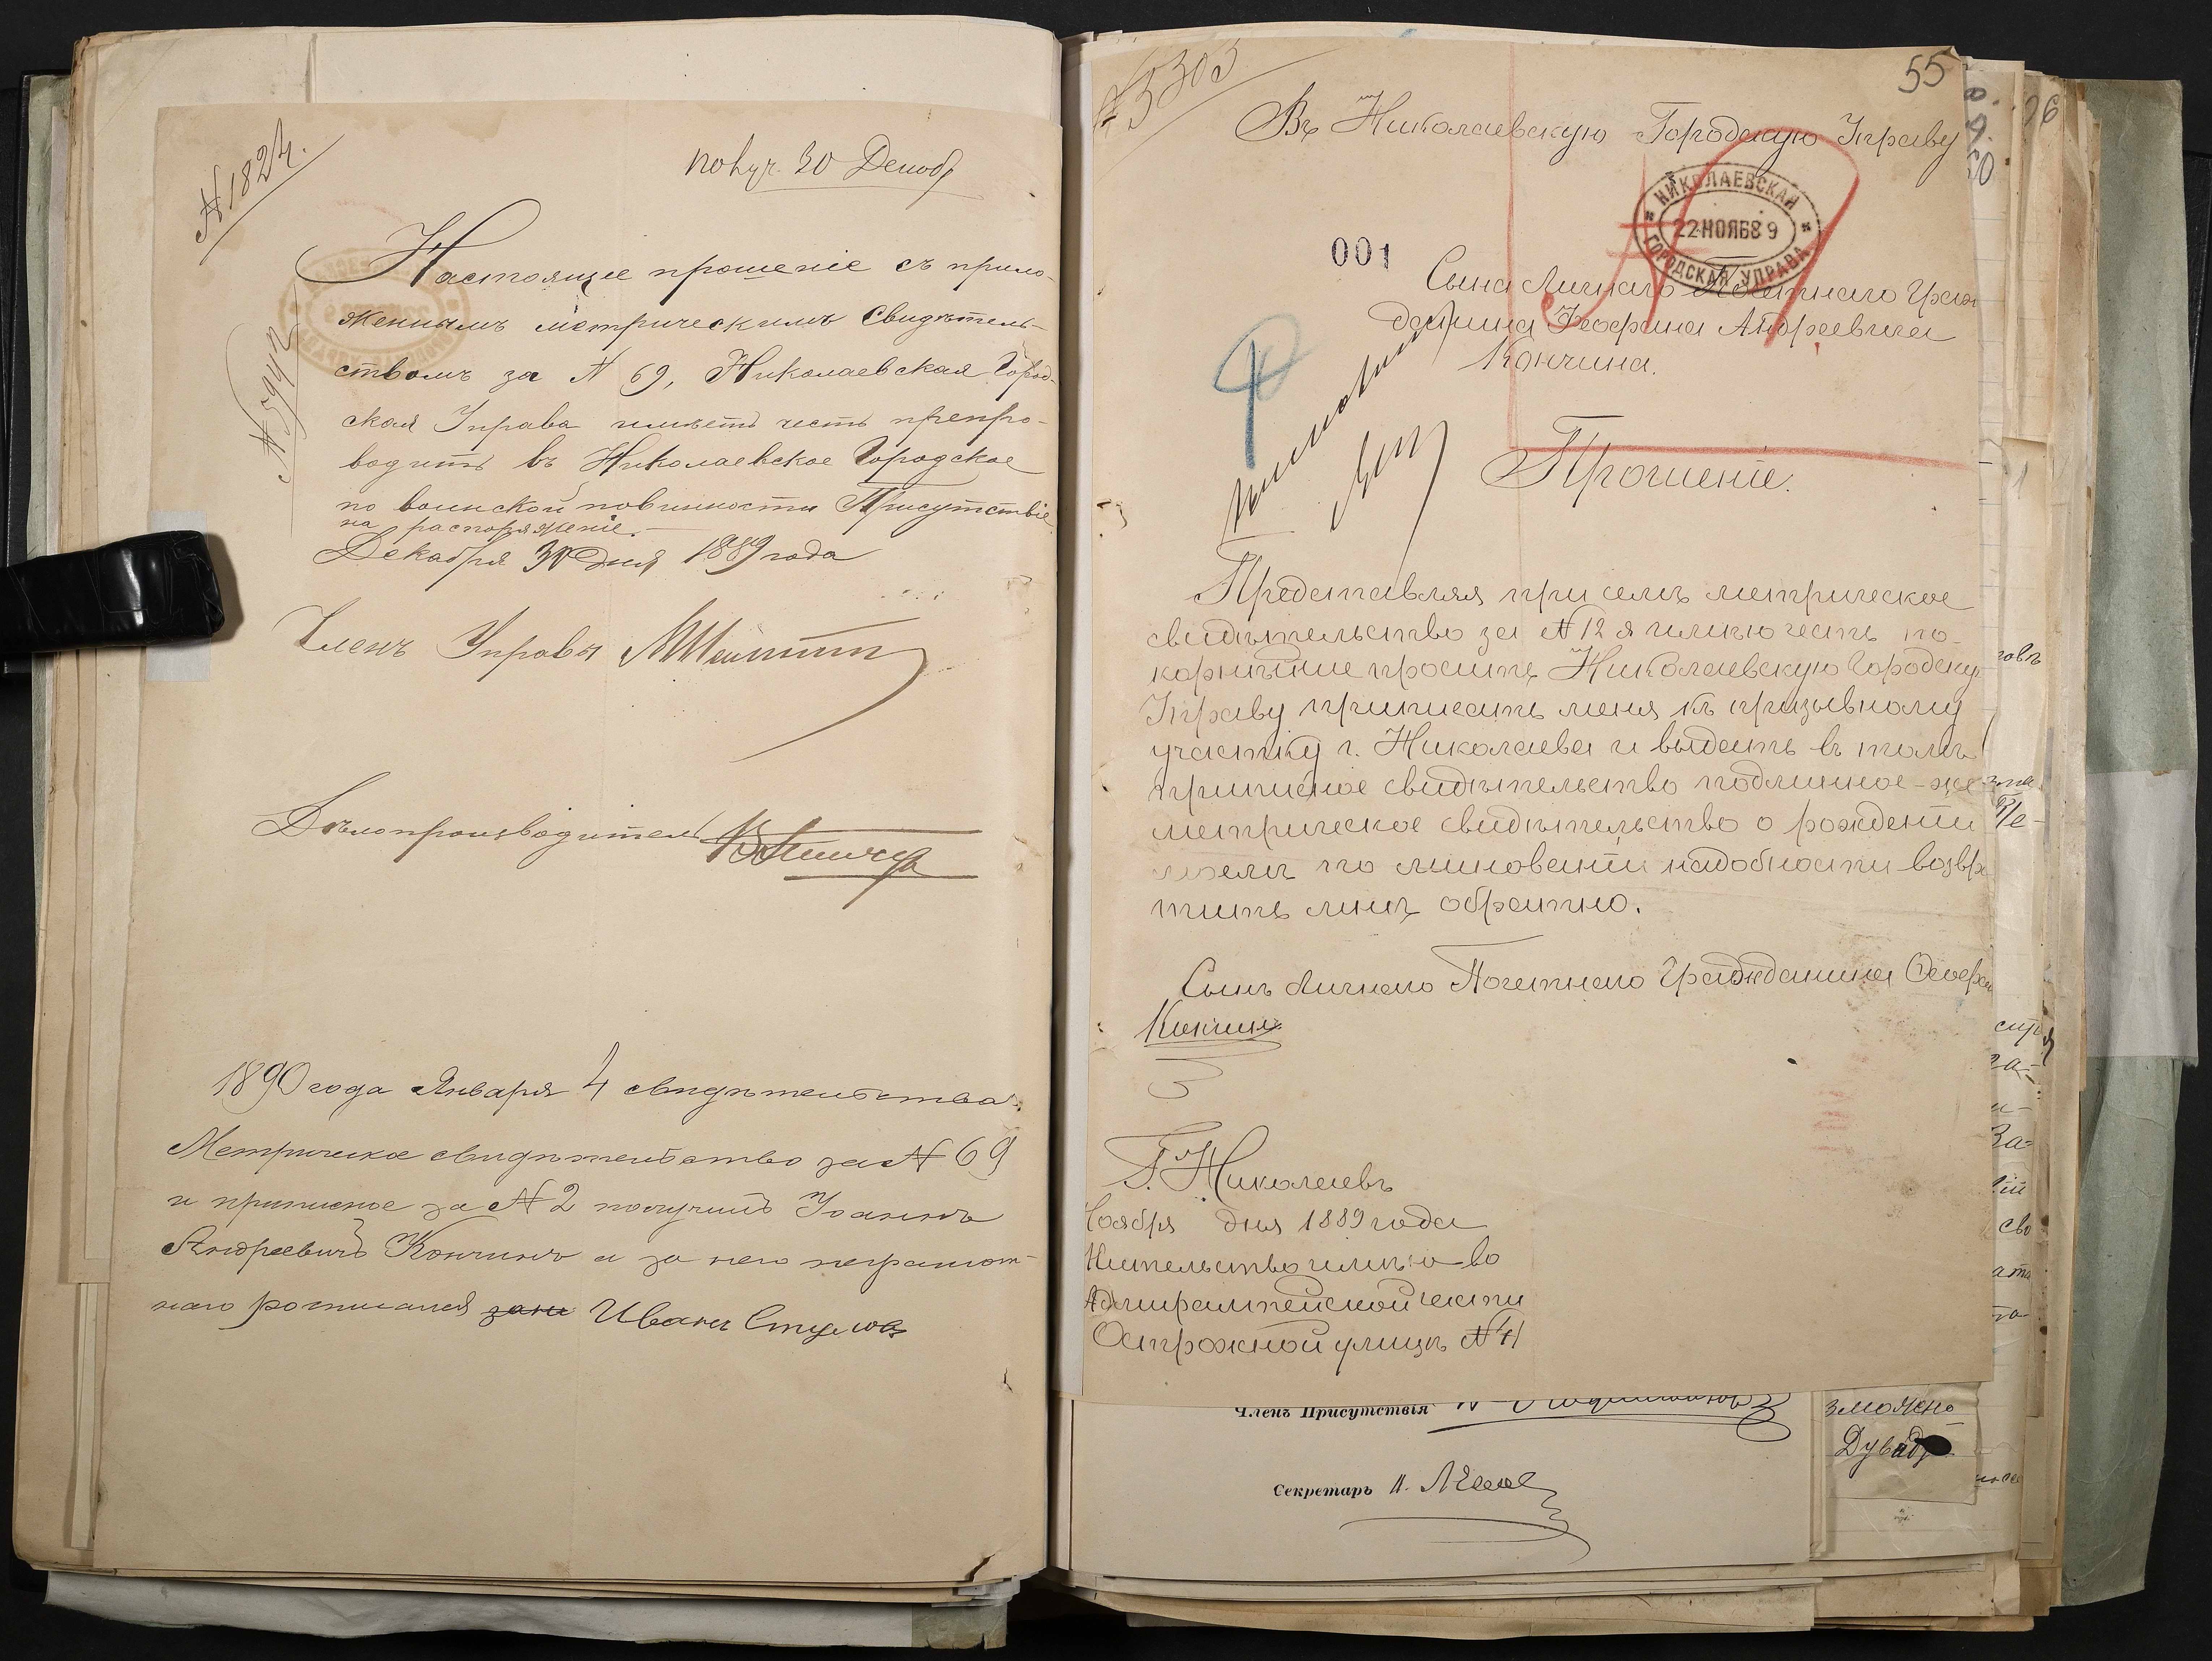 № 1824.
получ. 30 Декоб
Настоящее прошеніе съ прило-
женнымъ метрическимъ свидѣтель-
ствомъ за № 69, Николаевская Город-
ская Управа имѣетъ честь препро-
водить въ Николаевское Городское
по воинской повинности Присутствіе
на распоряженіе.
Декабря 30 дня 1889 года
Членъ Управы
Дѣлопроизводитель
1890 года Января 4 свидѣтельства
Метрическое свидѣтельство за № 69
и приписное за № 2 получилъ Іоаннъ
Андреевичъ Кончинъ а за него неграмот-
наго росписался Иванъ
55
№ 5303
Въ Николаевскую Городскую Управу
НИКОЛАЕВСКАЯ
22 НОЯБ 89
ГОРОДСКАЯ УПРАВА
001
Сына Личнаго Почетнаго Граж
данина Феофана Андреевича
Кончина.
Прошеніе.
Представляя при семъ метрическое
свидѣтельство за № 12 я имѣю честь по-
корнѣйше просить Николаевскую Городскую
Управу приписать меня къ призывному
участку г. Николаева и выдать въ томъ
приписное свидѣтельство подлинное-же
метрическое свидѣтельство о рожденіи
моемъ по миновеніи надобности возвра
тить мнѣ обратно.
Сынъ Личнаго Почетнаго Гражданина Феофан
Кончинъ
Г. Николаевъ
Ноября дня 1889 года
Жительство имѣю во
Адмиралтейской части
Острожной улицѣ № 41
Членъ Присутствія
Секретарь
зможно